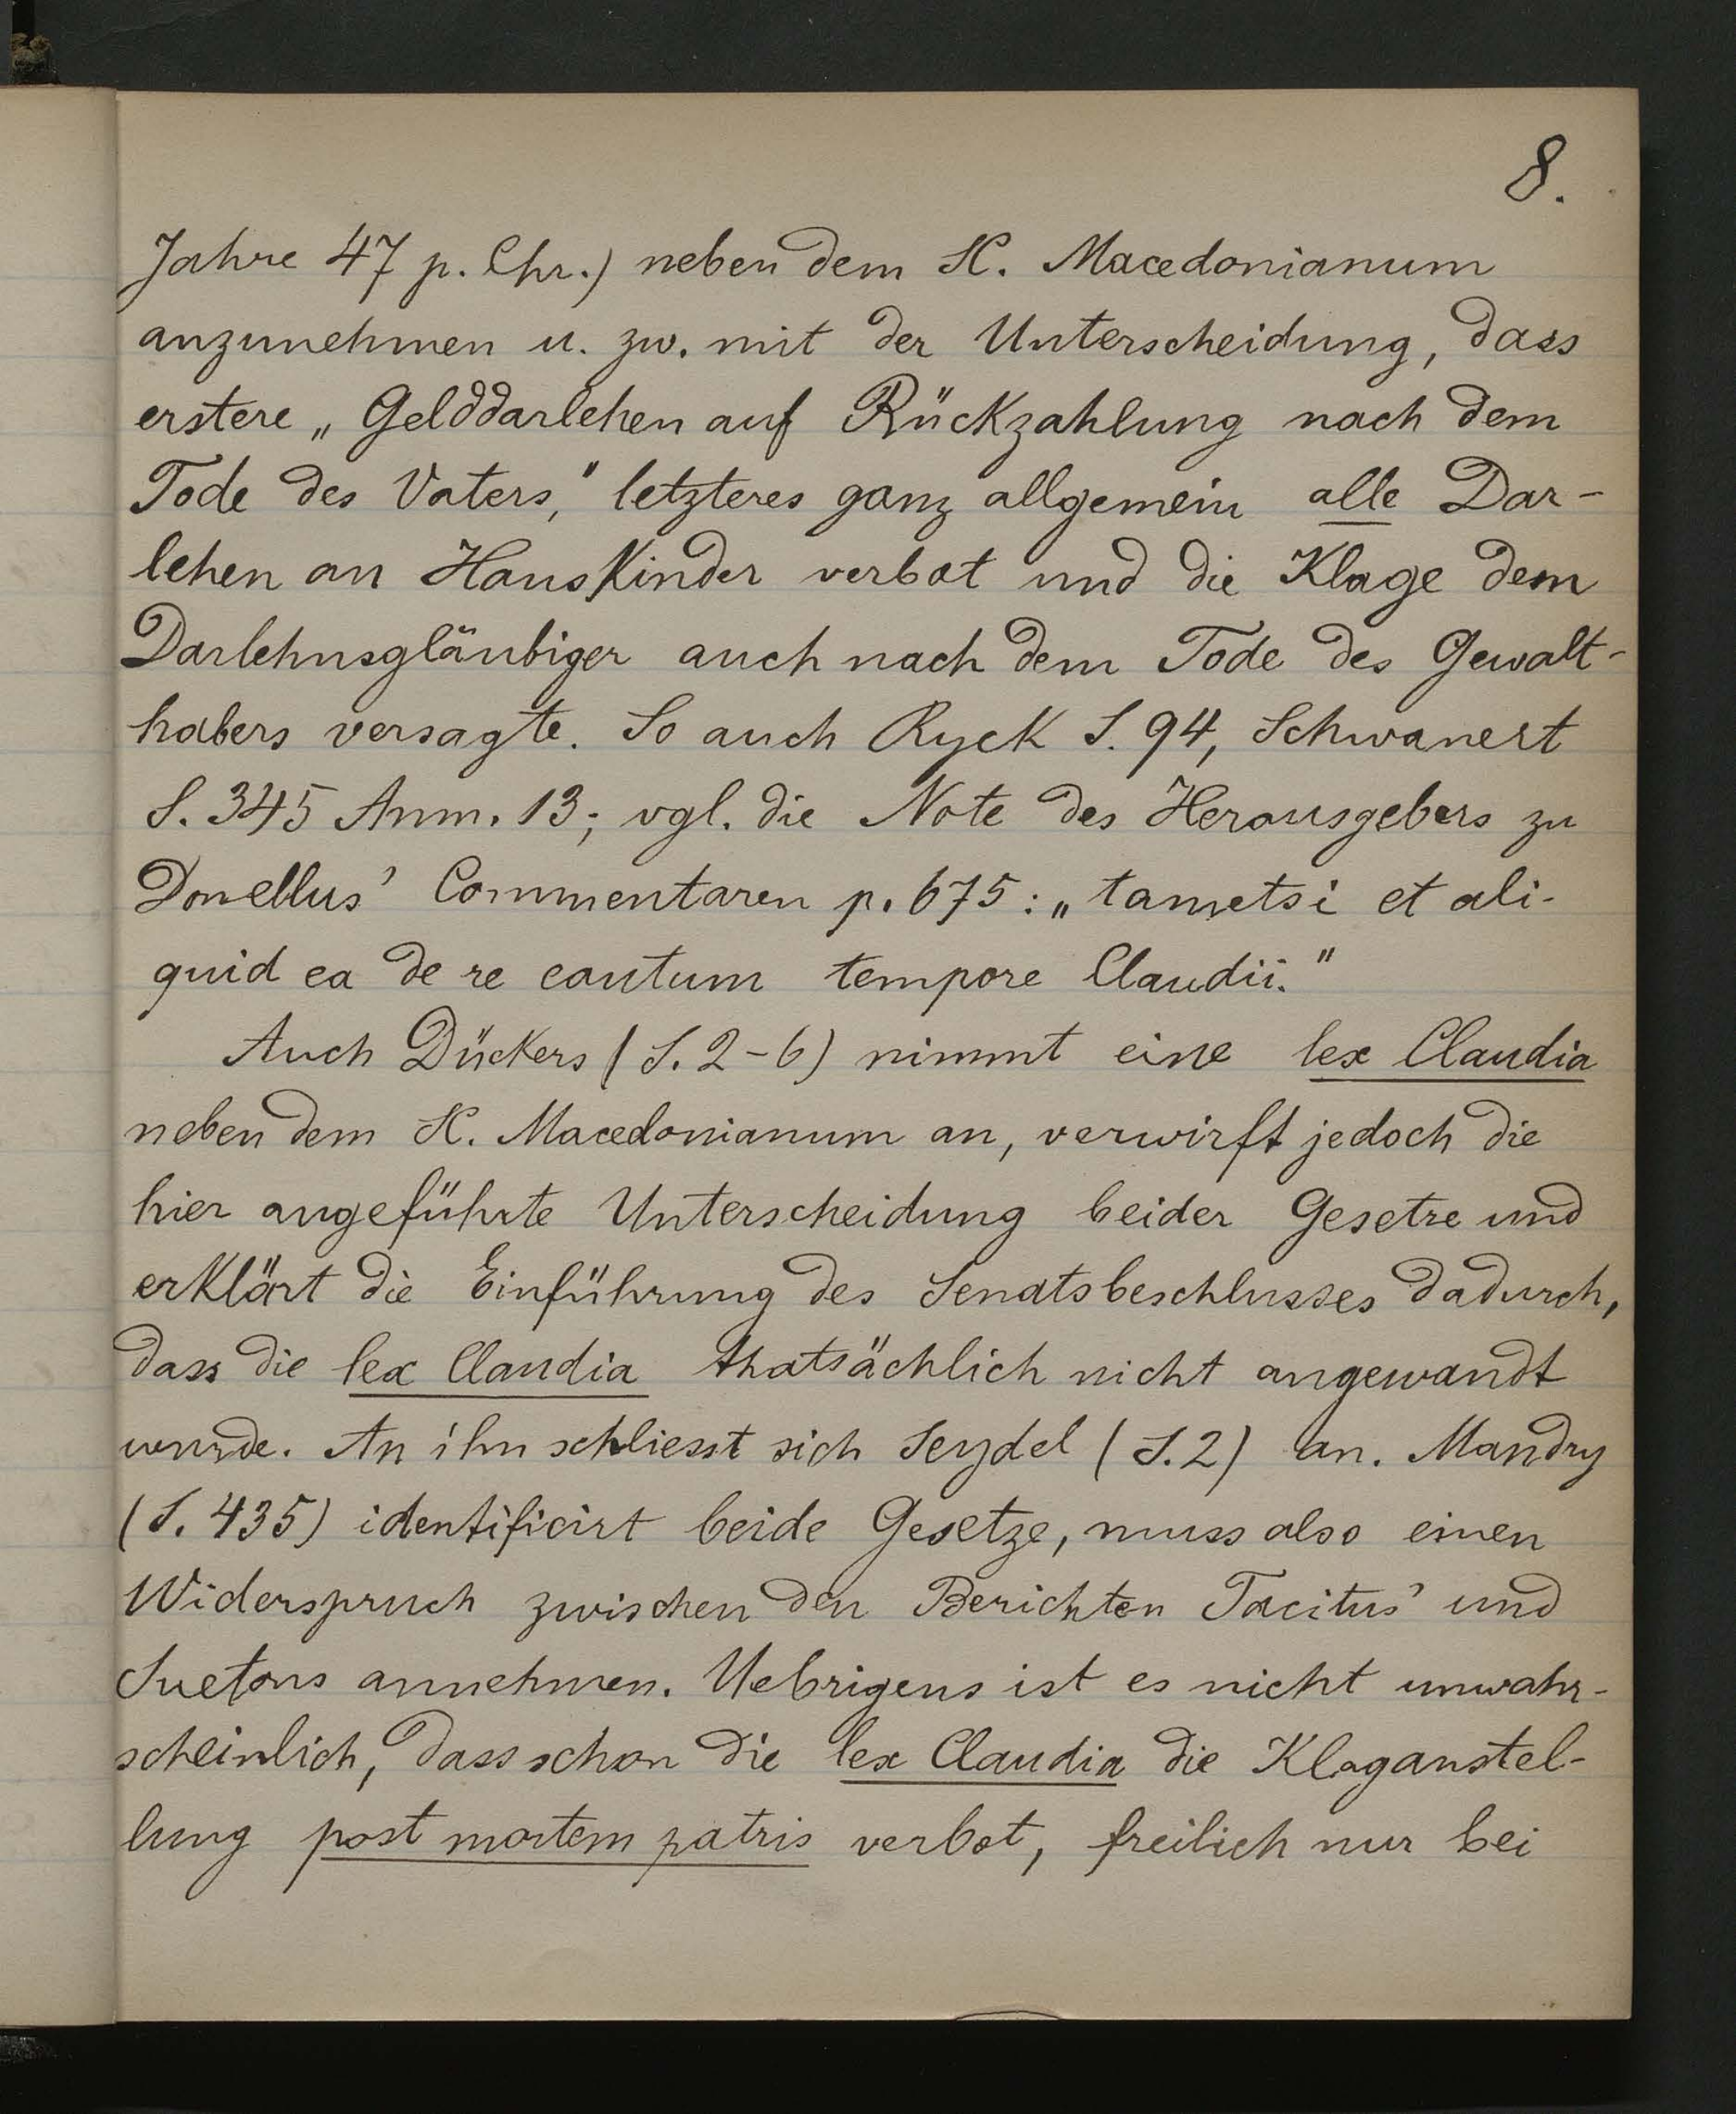 8.
Jahre 47 p. Chr.) neben dem SC. Macedonianum
anzunehmen u. zw. mit der Unterscheidung, dass
erstere „Gelddarlehen auf Rückzahlung nach dem
Tode des Vaters," letzteres ganz allgemein alle Dar-
lehen an Hauskinder verbot und die Klage dem
Darlehnsgläubiger auch nach dem Tode des Gewalt-
habers versagte. So auch Ryck S. 94, Schwanert
S. 345 Anm. 13; vgl. die Note des Herausgebers zu
Donellus' Commentaren p. 675: „tametsi et ali-
quid ea de re cautum tempore Claudii."
Auch Dückers (S. 2-6) nimmt eine lex Claudia
neben dem SC. Macedonianum an, verwirft jedoch die
hier angeführte Unterscheidung beider Gesetze und
erklärt die Einführung des Senatsbeschlusses dadurch,
dass die lex Claudia thatsächlich nicht angewandt
wurde. An ihn schliesst sich Seydel (S. 2) an. Mandry
(S. 435) identificirt beide Gesetze, muss also einen
Widerspruch zwischen den Berichten Tacitus' und
Suetons annehmen. Uebrigens ist es nicht unwahr-
scheinlich, dass schon die lex Claudia die Klaganstel-
lung post mortem patris verbot, freilich nur bei